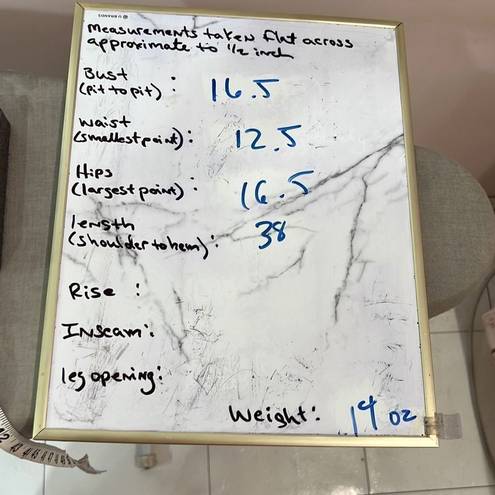 U BRANDS
Measurements taken flat across
approximate to 1/2 inch
Bust
(pit to pit) : 16.5
waist
(smallest point): 12.5
Hips
(largest point) : 16.5
length
(shoulder to hem): 38
Rise :
Inseam:
leg opening:
Weight: 14 oz